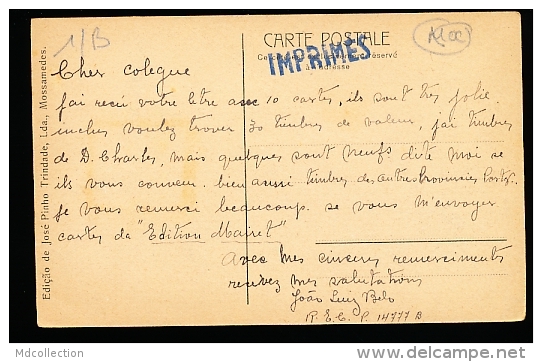 1/B
CARTE POSTALE
Ce côté est exclusivement réservé
à l'adresse
IMPRIMÉS
Cher colegue
J'ai reçu votre letre avec 10 cartes, ils sont tres jolie
inclus voulez trouver 30 timbres de valeur, j'ai timbres
de D. Charles, mais quelques sont neufs dite moi se
ils vous convem. bien aussi timbres des autres Provinsies Portg.
Je vous remerci beaucoup se vous m'envoyer
cartes da "Edition Mairet"
Avec mes cinceres remerciments
recevez mes salutations
João Luiz Belo
R. E. C. P. 14777 B
Edição de José Pinho Trindade, Lda., Mossamedes.
Mdcollection
http://www.delcampe.net